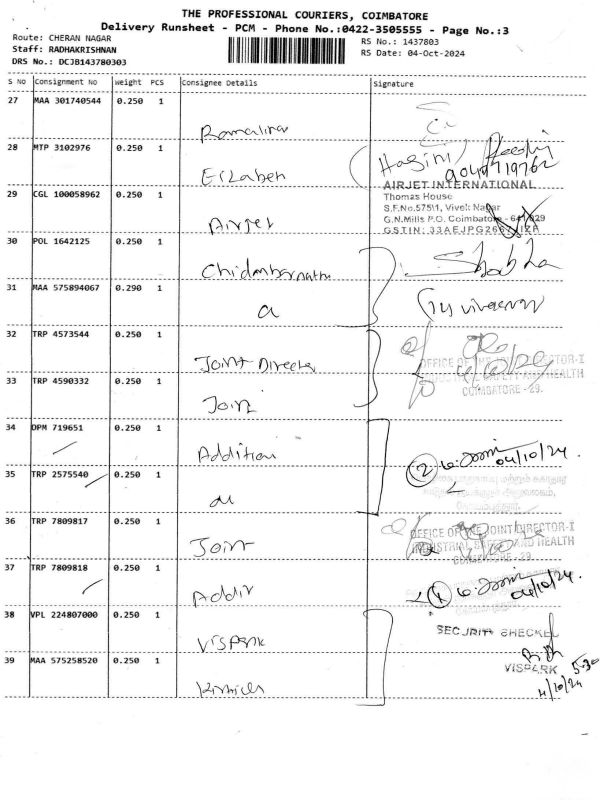 THE PROFESSIONAL COURIERS, COIMBATORE
Delivery Runsheet - PCM - Phone No.:0422-3505555 - Page No.:3
Route: CHERAN NAGAR
RS No.: 1437803
Staff: RADHAKRISHNAN
RS Date: 04-Oct-2024
DRS No.: DCJB143780303
S No Consignment No Weight PCS Consignee Details Signature
27 MAA 301740544 0.250 1
28 MTP 3102976 0.250 1
29 CGL 100058962 0.250 1
AIRJET INTERNATIONAL
Thomas House
S.F.No.575\1, Vivek Nagar
G.N.Mills P.O. Coimbatore - 641029
Airjet
30 POL 1642125 0.250 1
Shobha
31 MAA 575894067 0.290 1
a
32 TRP 4573544 0.250 1
Joint Director
33 TRP 4590332 0.250 1
COIMBATORE - 29.
Joint
34 DPM 719651 0.250 1
04/10/24
Addition
35 TRP 2575540 0.250 1
36 TRP 7809817 0.250 1
OFFICE OF THE JOINT DIRECTOR-I
INDUSTRIAL SAFETY AND HEALTH
Joint
37 TRP 7809818 0.250 1
04/10/24.
38 VPL 224807000 0.250 1
SECURITY CHECKED
Vispark
39 MAA 575258520 0.250 1
VISPARK
5-30
4/10/24